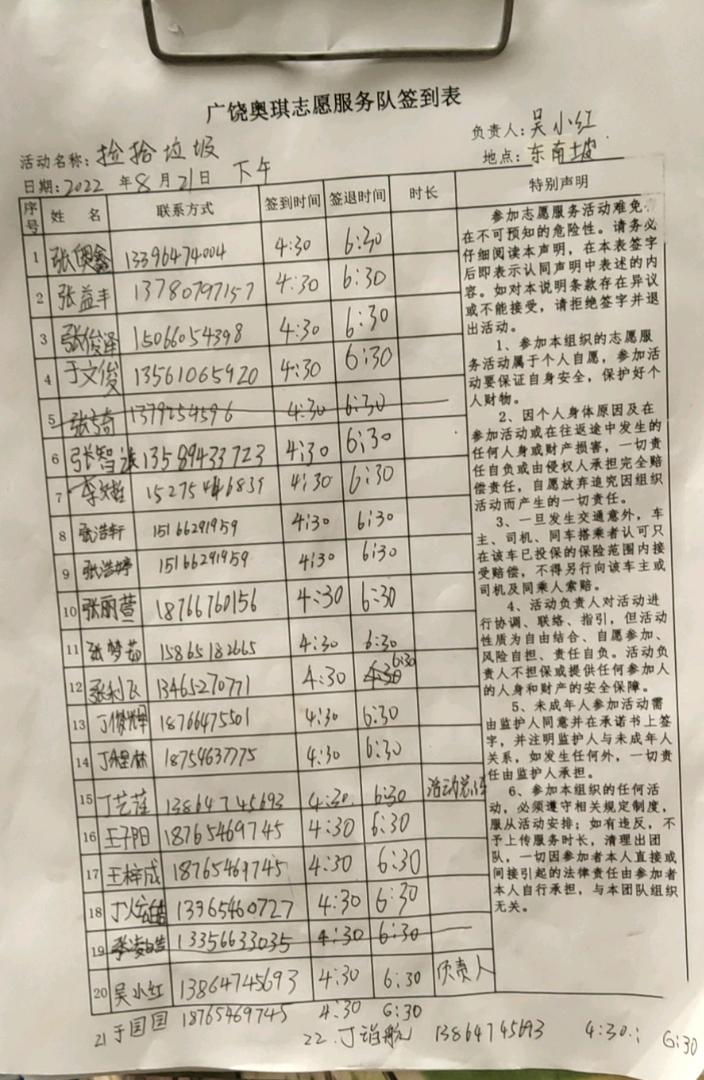 广饶奥琪志愿服务队签到表
活动名称：捡拾垃圾
负责人：吴小红
日期：2022年8月21日 下午
地点：东南坡
序号 姓 名 联系方式 签到时间 签退时间 时长 特别声明
1 张奥鑫 13396474004 4:30 6:30
2 张益丰 13780797157 4:30 6:30
3 张俊泽 15066054398 4:30 6:30
4 于文俊 13561065920 4:30 6:30
5 1379254596 4:30 6:30
6 张智 13589433723 4:30 6:30
7 4:30 6:30
8 张浩轩 15166291959 4:30 6:30
9 张浩婷 15166291959 4:30 6:30
10 张丽萱 18766760156 4:30 6:30
11 张梦茹 15865182665 4:30 6:30
12 张利飞 13465270771 4:30 6:30
13 丁俊辉 18766475501 4:30 6:30
14 18754637775 4:30 6:30
15 13864745693 4:30 6:30
16 王子阳 18765469745 4:30 6:30
17 王梓成 18765469745 4:30 6:30
18 13365460727 4:30 6:30
19 13356633035 4:30 6:30
20 吴小红 13864745693 4:30 6:30 负责人
21 于国国 18765469745 4:30 6:30
22. 13864745693 4:30 6:30
参加志愿服务活动难免存
在不可预知的危险性。请务必
仔细阅读本声明，在本表签字
后即表示认同声明中表述的内
容。如对本说明条款存在异议
或不能接受，请拒绝签字并退
出活动。
1、参加本组织的志愿服
务活动属于个人自愿，参加活
动要保证自身安全，保护好个
人财物。
2、因个人身体原因及在
参加活动或在往返途中发生的
任何人身或财产损害，一切责
任自负或由侵权人承担完全赔
偿责任，自愿放弃追究因组织
活动而产生的一切责任。
3、一旦发生交通意外，车
主、司机、同车搭乘者认可只
在该车已投保的保险范围内接
受赔偿，不得另行向该车主或
司机及同乘人索赔。
4、活动负责人对活动进
行协调、联络、指引，但活动
性质为自由结合、自愿参加、
风险自担、责任自负。活动负
责人不担保或提供任何参加人
的人身和财产的安全保障。
5、未成年人参加活动需
由监护人同意并在承诺书上签
字，并注明监护人与未成年人
关系，如发生任何外，一切责
任由监护人承担。
6、参加本组织的任何活
动，必须遵守相关规定制度，
服从活动安排；如有违反，不
予上传服务时长，清理出团
队，一切因参加者本人直接或
间接引起的法律责任由参加者
本人自行承担，与本团队组织
无关。